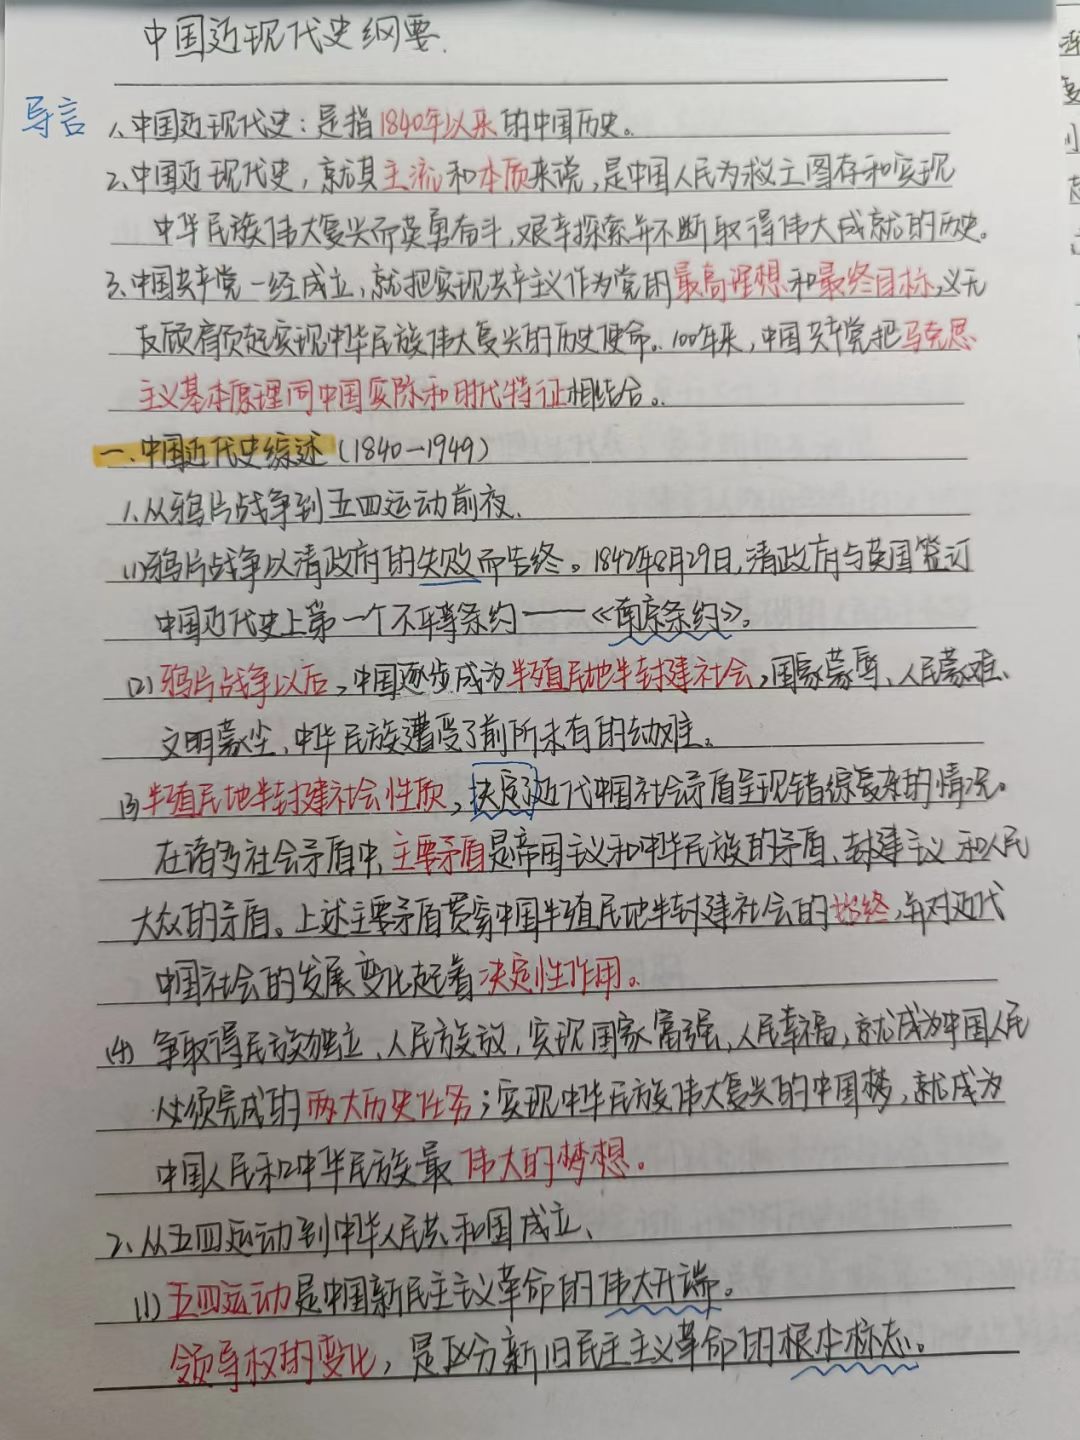 中国近现代史纲要.
导言 1、中国近现代史：是指1840年以来的中国历史。
2、中国近现代史，就其主流和本质来说，是中国人民为救亡图存和实现
中华民族伟大复兴而英勇奋斗，艰辛探索并不断取得伟大成就的历史。
3、中国共产党一经成立，就把实现共产主义作为党的最高理想和最终目标，义无
反顾肩负起实现中华民族伟大复兴的历史使命。100年来，中国共产党把马克思
主义基本原理同中国实际和时代特征相结合。
一、中国近代史综述（1840—1949）
1、从鸦片战争到五四运动前夜、
(1)鸦片战争以清政府的失败而告终。1842年8月29日，清政府与英国签订
中国近代史上第一个不平等条约——《南京条约》。
(2)鸦片战争以后，中国逐步成为半殖民地半封建社会，国家蒙辱、人民蒙难、
文明蒙尘、中华民族遭受了前所未有的劫难。
(3)半殖民地半封建社会性质，决定了近代中国社会矛盾呈现错综复杂的情况。
在诸多社会矛盾中，主要矛盾是帝国主义和中华民族的矛盾、封建主义和人民
大众的矛盾。上述主要矛盾贯穿中国半殖民地半封建社会的始终，并对近代
中国社会的发展变化起着决定性作用。
(4) 争取得民族独立、人民族放，实现国家富强、人民幸福，就成为中国人民
必须完成的两大历史任务；实现中华民族伟大复兴的中国梦，就成为
中国人民和中华民族最伟大的梦想。
2、从五四运动到中华人民共和国成立、
(1)五四运动是中国新民主主义革命的伟大开端。
领导权的变化，是区分新旧民主主义革命的根本标志。